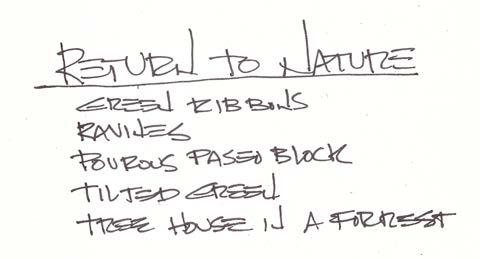 RETURN TO NATURE
GREEN RIBBONS
RAVINES
POUROUS PASEO BLOCK
TILTED GREEN
TREE HOUSE IN A FORREST